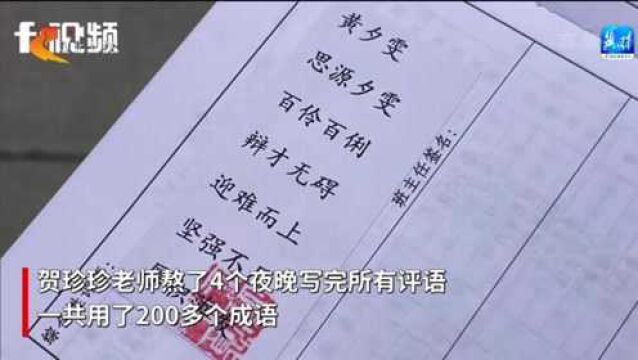 视频
黄夕雯
思源夕雯
百伶百俐
辩才无碍
迎难而上
坚强不
班主任签名:
贺珍珍老师熬了4个夜晚写完所有评语
一共用了200多个成语